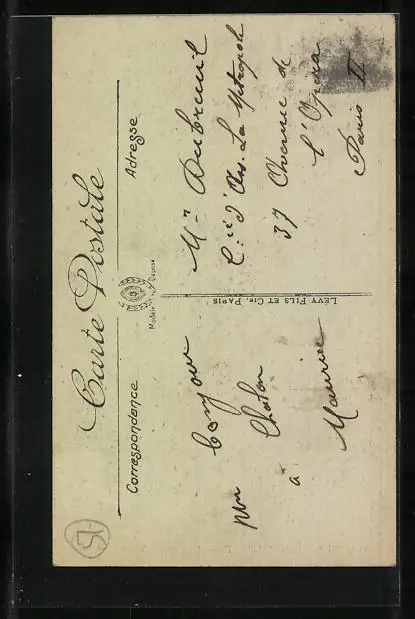 Carte Postale
Correspondance
Adresse
Modèle Déposé
LÉVY FILS ET CIE, PARIS
un bonjour
à Chalon
Maurice
Mr Dubreuil
C.ie d'Ass. La Métropole
37 Avenue de
l'Opéra
Paris II
15